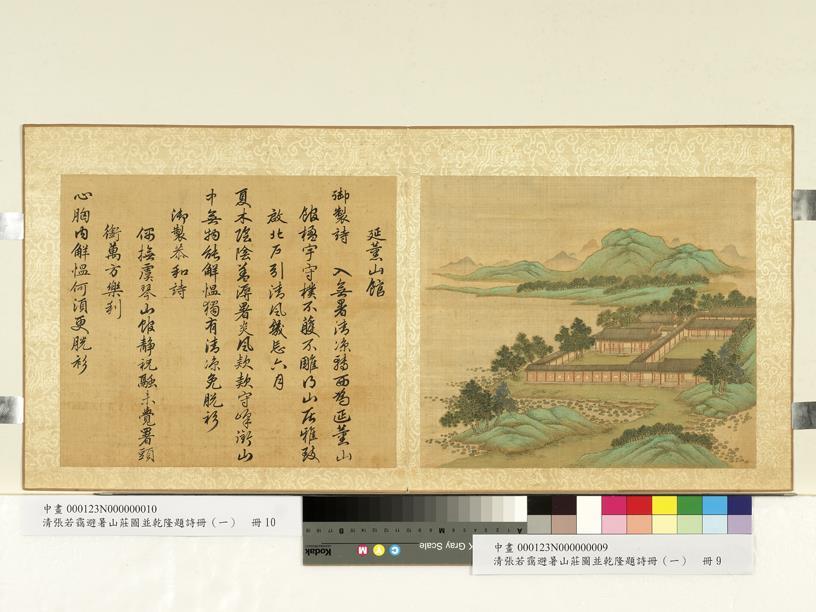 延薰山館
御製詩 入無暑清涼轉西為延薰山
館楹宇守樸不雘不雕得山居雅致
啟北户引清風幾忘六月
夏木陰陰蓋溽暑炎風款款守峰衙山
中無物能解慍獨有清涼免脫衫
御製恭和詩
偶撫虞琴山館靜祝融未覺暑頭
銜萬方樂利
心胸內解慍何須更脫衫
中畫 000123N000000010
清張若靄避暑山莊圖並乾隆題詩冊(一) 冊10
中畫 000123N000000009
清張若靄避暑山莊圖並乾隆題詩冊(一) 冊9
Kodak
Gray Scale
C Y M
A
M
B